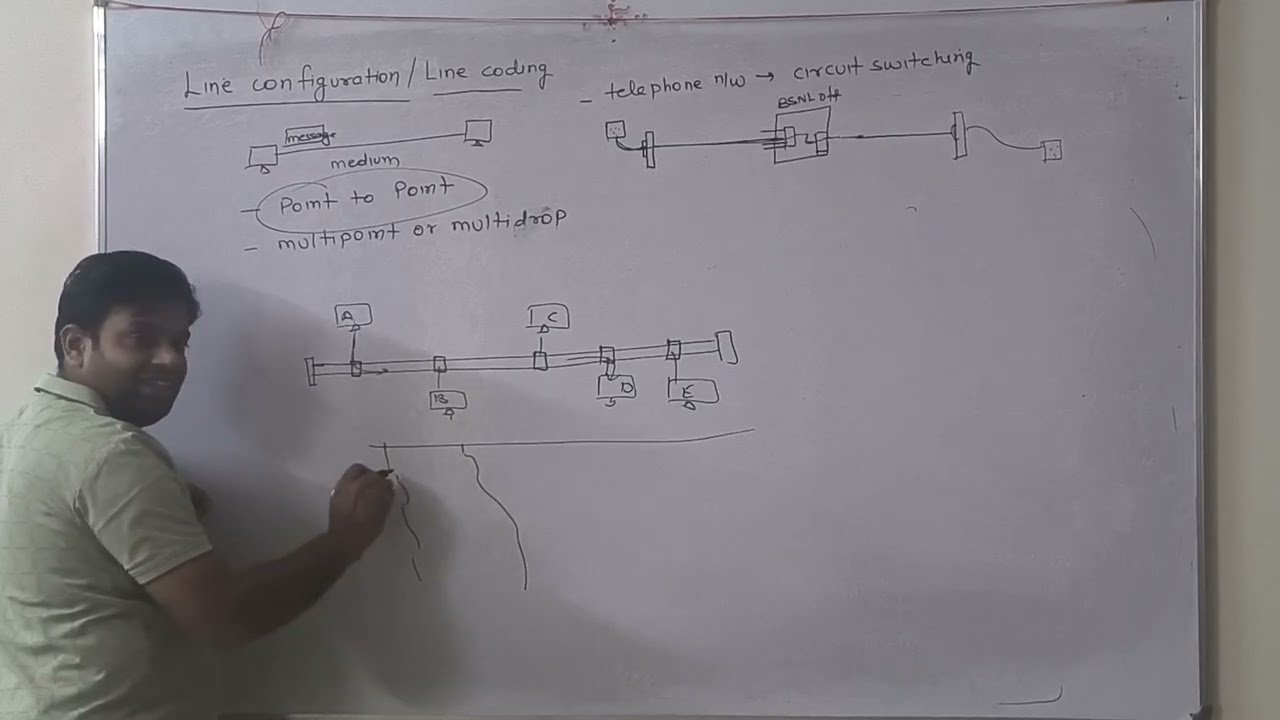 Line configuration / Line coding
message
medium
- Point to Point
- multipoint or multidrop
- telephone n/w → circuit switching
BSNL Off
A
C
B
D
E